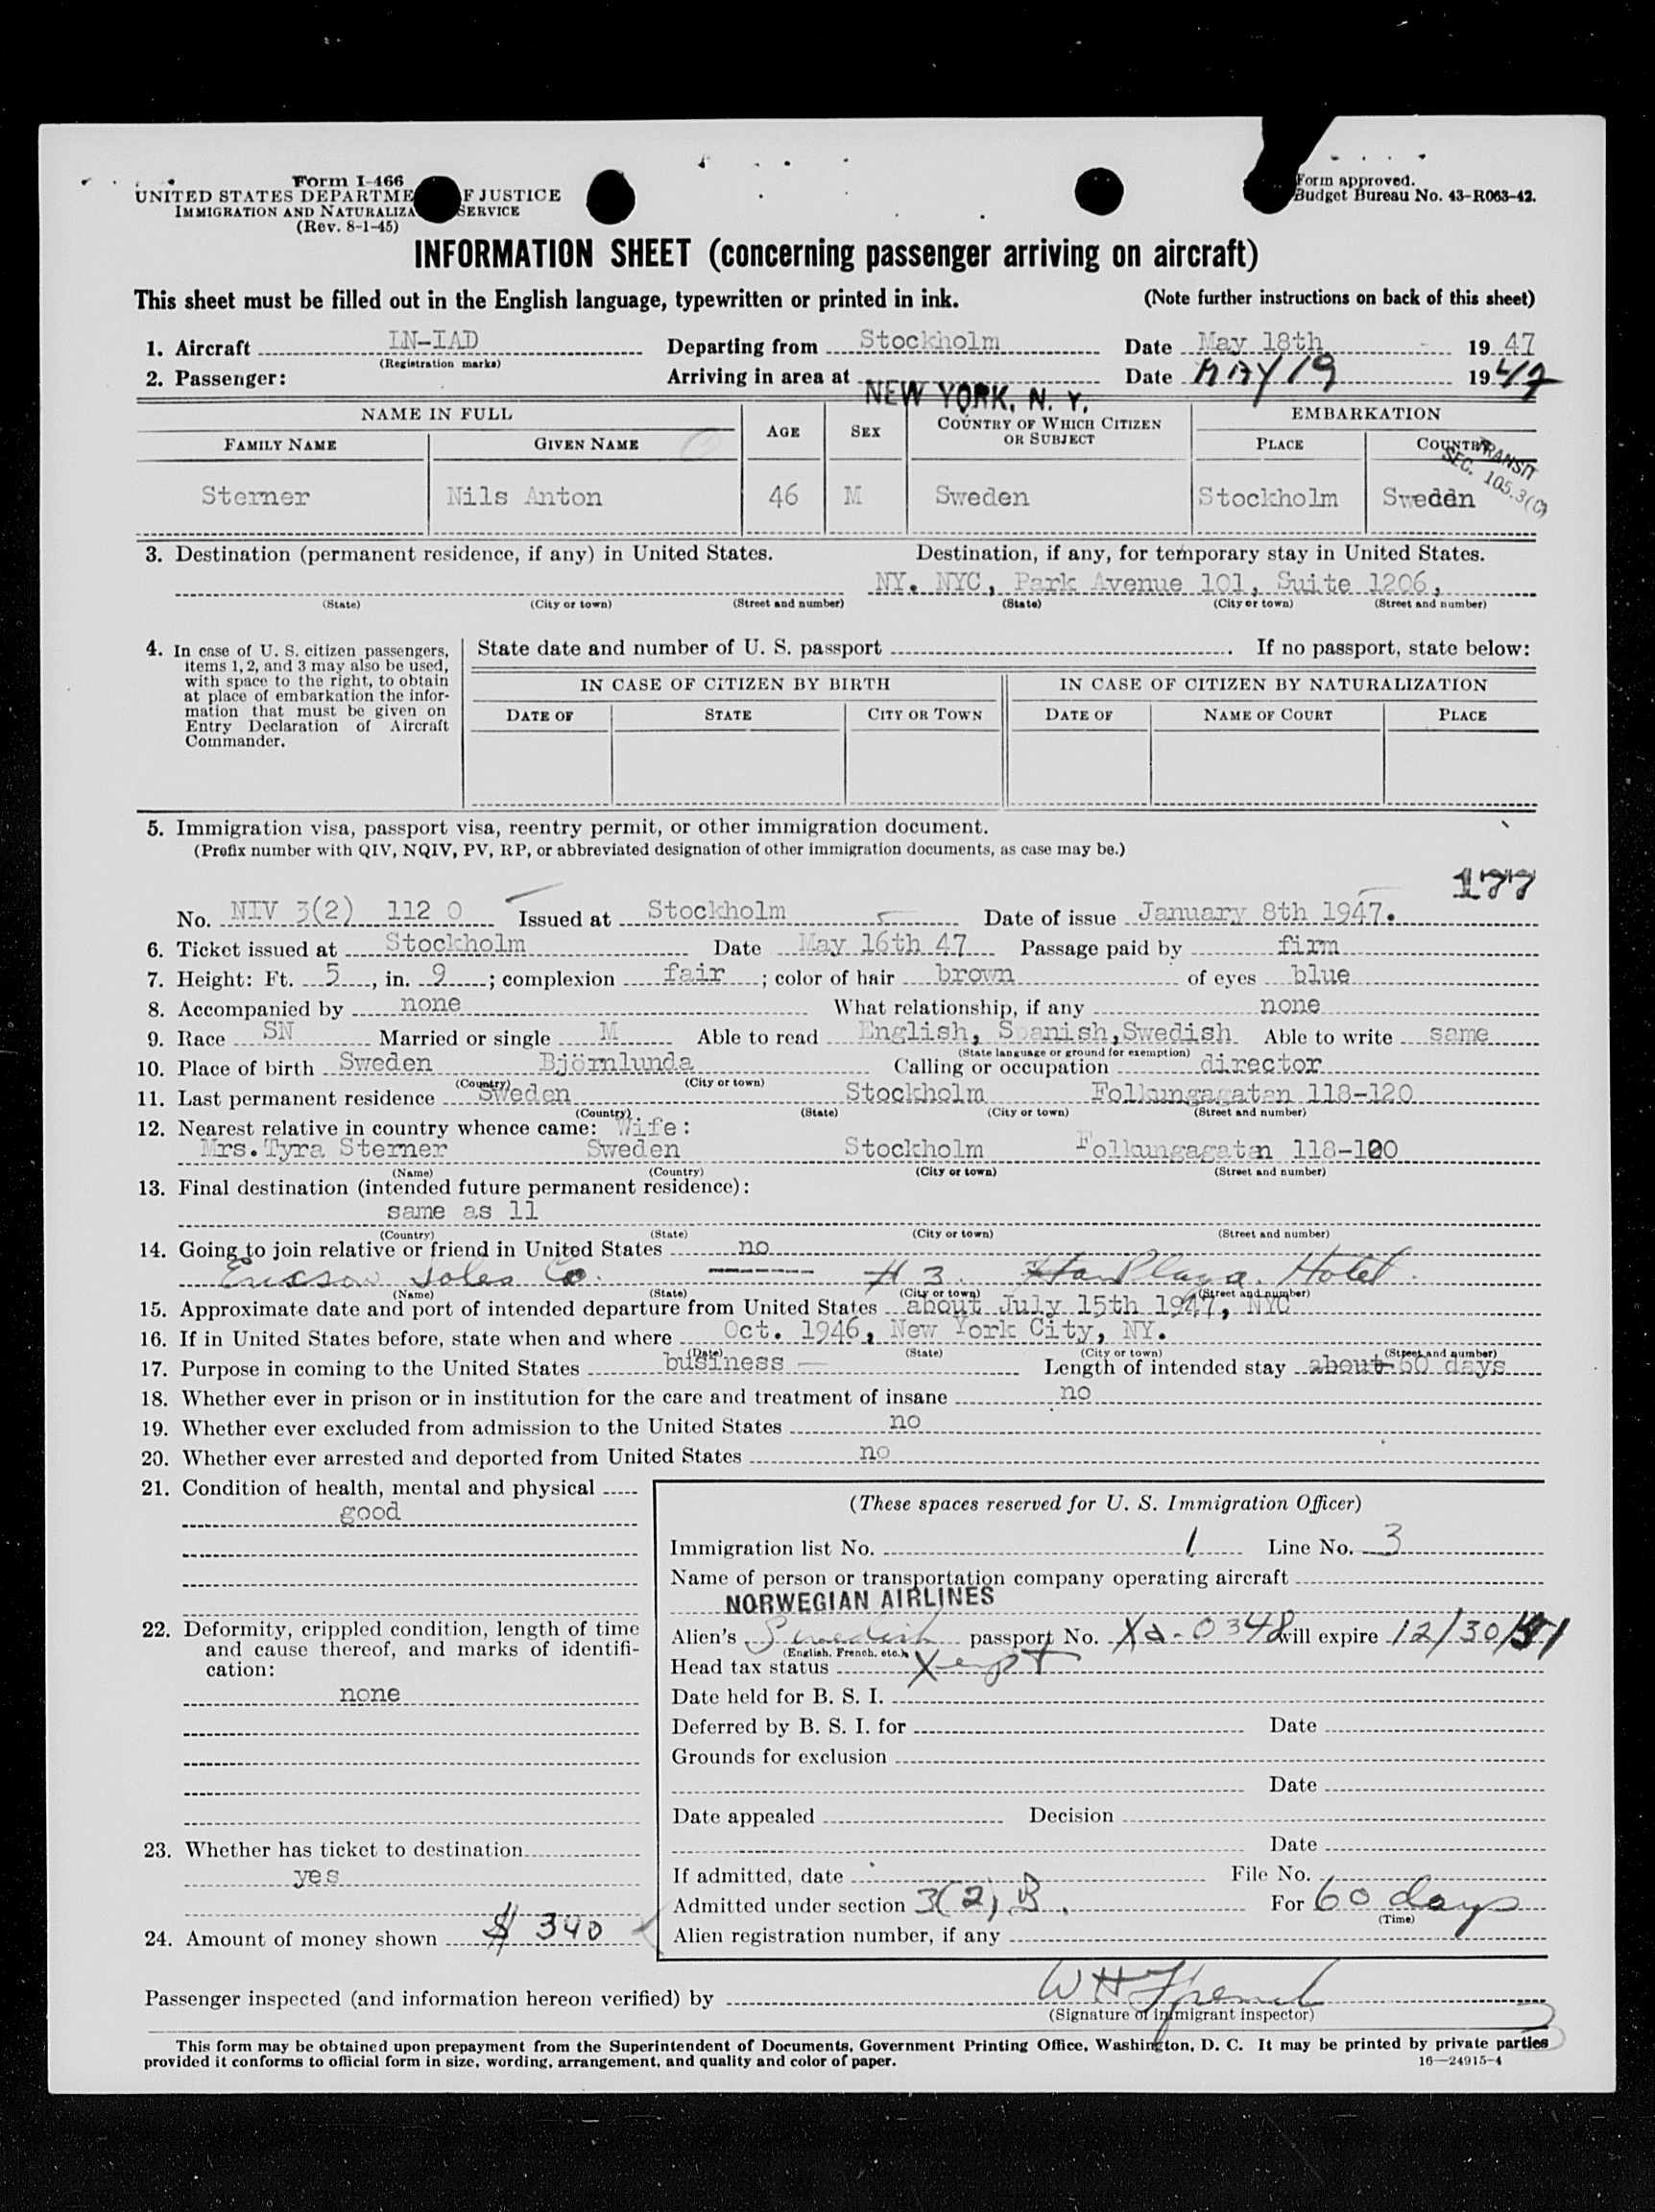 Form I-466
UNITED STATES DEPARTME F JUSTICE
IMMIGRATION AND NATURALIZA SERVICE
(Rev. 8-1-45)
Form approved.
Budget Bureau No. 43-R063-42.
INFORMATION SHEET (concerning passenger arriving on aircraft)
This sheet must be filled out in the English language, typewritten or printed in ink. (Note further instructions on back of this sheet)
1. Aircraft LN-IAD Departing from Stockholm Date May 18th 1947
(Registration marks)
2. Passenger: Arriving in area at NEW YORK, N. Y. Date MAY 19 1947
NAME IN FULL AGE SEX COUNTRY OF WHICH CITIZEN OR SUBJECT EMBARKATION
FAMILY NAME GIVEN NAME PLACE COUNTRY
TRANSIT
SEC. 105.3(C)
Sterner Nils Anton 46 M Sweden Stockholm Sweden
3. Destination (permanent residence, if any) in United States. Destination, if any, for temporary stay in United States.
NY. NYC, Park Avenue 101, Suite 1206,
(State) (City or town) (Street and number) (State) (City or town) (Street and number)
4. In case of U. S. citizen passengers,
items 1, 2, and 3 may also be used,
with space to the right, to obtain
at place of embarkation the infor-
mation that must be given on
Entry Declaration of Aircraft
Commander.
State date and number of U. S. passport . If no passport, state below:
IN CASE OF CITIZEN BY BIRTH IN CASE OF CITIZEN BY NATURALIZATION
DATE OF STATE CITY OR TOWN DATE OF NAME OF COURT PLACE
5. Immigration visa, passport visa, reentry permit, or other immigration document.
(Prefix number with QIV, NQIV, PV, RP, or abbreviated designation of other immigration documents, as case may be.)
177
No. NIV 3(2) 112 0 Issued at Stockholm Date of issue January 8th 1947.
6. Ticket issued at Stockholm Date May 16th 47 Passage paid by firm
7. Height: Ft. 5, in. 9; complexion fair; color of hair brown of eyes blue
8. Accompanied by none What relationship, if any none
9. Race SN Married or single M Able to read English, Spanish, Swedish Able to write same
(State language or ground for exemption)
10. Place of birth Sweden Björnlunda Calling or occupation director
(Country) (City or town)
11. Last permanent residence Sweden Stockholm Folkungagatan 118-120
(Country) (State) (City or town) (Street and number)
12. Nearest relative in country whence came: Wife:
Mrs. Tyra Sterner Sweden Stockholm Folkungagatan 118-120
(Name) (Country) (City or town) (Street and number)
13. Final destination (intended future permanent residence):
same as 11
(Country) (State) (City or town) (Street and number)
14. Going to join relative or friend in United States no
Ericson Sales Co. Plaza Hotel.
(Name) (State) (City or town) (Street and number)
15. Approximate date and port of intended departure from United States about July 15th 1947, NYC
16. If in United States before, state when and where Oct. 1946, New York City, NY.
(Date) (State) (City or town) (Street and number)
17. Purpose in coming to the United States business Length of intended stay about 60 days
18. Whether ever in prison or in institution for the care and treatment of insane no
19. Whether ever excluded from admission to the United States no
20. Whether ever arrested and deported from United States no
21. Condition of health, mental and physical
good
22. Deformity, crippled condition, length of time
and cause thereof, and marks of identifi-
cation:
none
23. Whether has ticket to destination
yes
24. Amount of money shown $ 340
(These spaces reserved for U. S. Immigration Officer)
Immigration list No. 1 Line No. 3
Name of person or transportation company operating aircraft
NORWEGIAN AIRLINES
Alien's Swedish passport No. Xd-0348 will expire 12/30/51
(English, French, etc.)
Head tax status Xempt
Date held for B. S. I.
Deferred by B. S. I. for Date
Grounds for exclusion
Date
Date appealed Decision
Date
If admitted, date File No.
Admitted under section 3(2) B. For 60 days
(Time)
Alien registration number, if any
Passenger inspected (and information hereon verified) by W H French
(Signature of immigrant inspector)
This form may be obtained upon prepayment from the Superintendent of Documents, Government Printing Office, Washington, D. C. It may be printed by private parties
provided it conforms to official form in size, wording, arrangement, and quality and color of paper. 16—24915-4